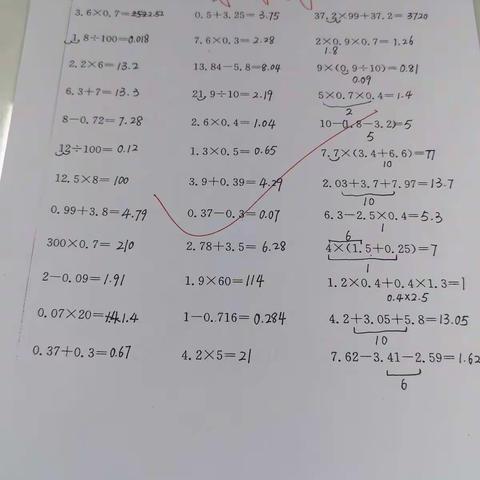 3.6×0.7=2.52 0.5+3.25=3.75 37.2×99+37.2=3720
1.8÷100=0.018 7.6×0.3=2.28 2×0.9×0.7=1.26
1.8
2.2×6=13.2 13.84-5.8=8.04 9×(0.9÷10)=0.81
0.09
6.3+7=13.3 21.9÷10=2.19 5×0.7×0.4=1.4
2
8-0.72=7.28 2.6×0.4=1.04 10-0.8-3.2)=5
5
12÷100=0.12 1.3×0.5=0.65 7.7×(3.4+6.6)=77
10
12.5×8=100 3.9+0.39=4.29 2.03+3.7+7.97=13.7
10
0.99+3.8=4.79 0.37-0.3=0.07 6.3-2.5×0.4=5.3
1
6
300×0.7=210 2.78+3.5=6.28 4×(1.5+0.25)=7
1
2-0.09=1.91 1.9×60=114 1.2×0.4+0.4×1.3=1
0.4×2.5
0.07×20=1.4 1-0.716=0.284 4.2+3.05+5.8=13.05
10
0.37+0.3=0.67 4.2×5=21 7.62-3.41-2.59=1.62
6